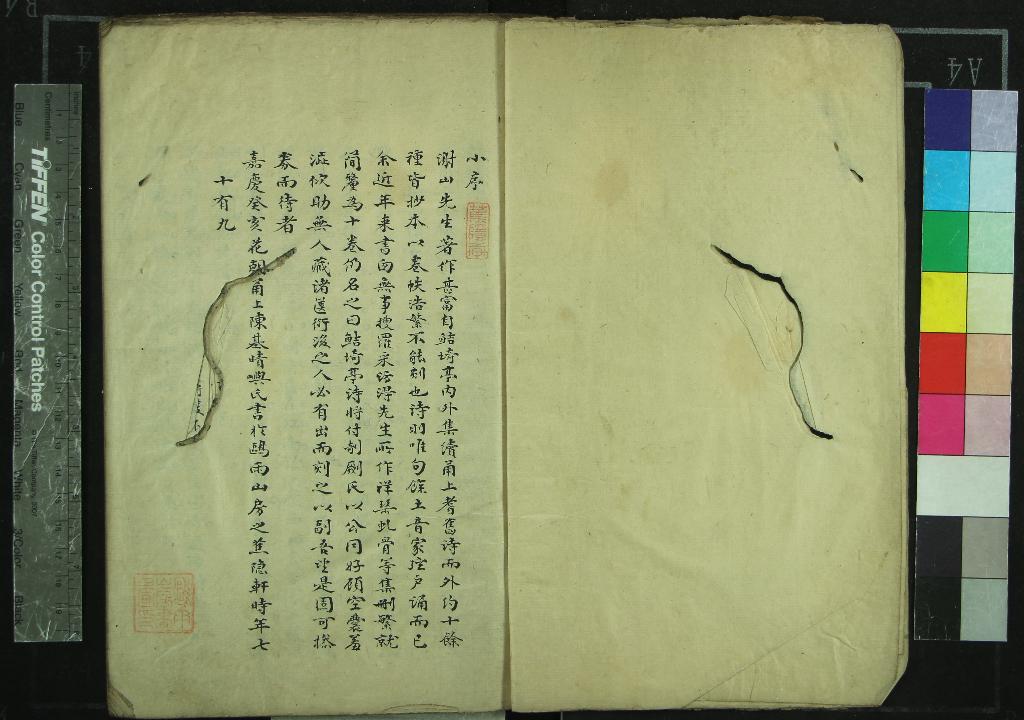 小序
謝山先生著作甚富自鮚埼亭內外集續甬上耆舊詩而外約十餘
種皆抄本以卷帙浩繁不能刻也詩則唯句餘土音家弦戶誦而已
余近年來書函無事搜羅采訪得先生所作詳琴虬骨等集刪繁就
簡釐為十卷仍名之曰鮚埼亭詩將付剞劂氏以公同好顧空囊羞
澀佽助無人藏諸篋衍後之人必有出而刻之以副吾望是固可搽
券而待者
嘉慶癸亥花朝甬上陳基晴嶼氏書於鷗雨山房之蕉隱軒時年七
十有九
TIFFEN Color Control Patches
Blue Cyan Green Yellow Red Magenta White 3/Color Black
Centimetres
Inches
A4